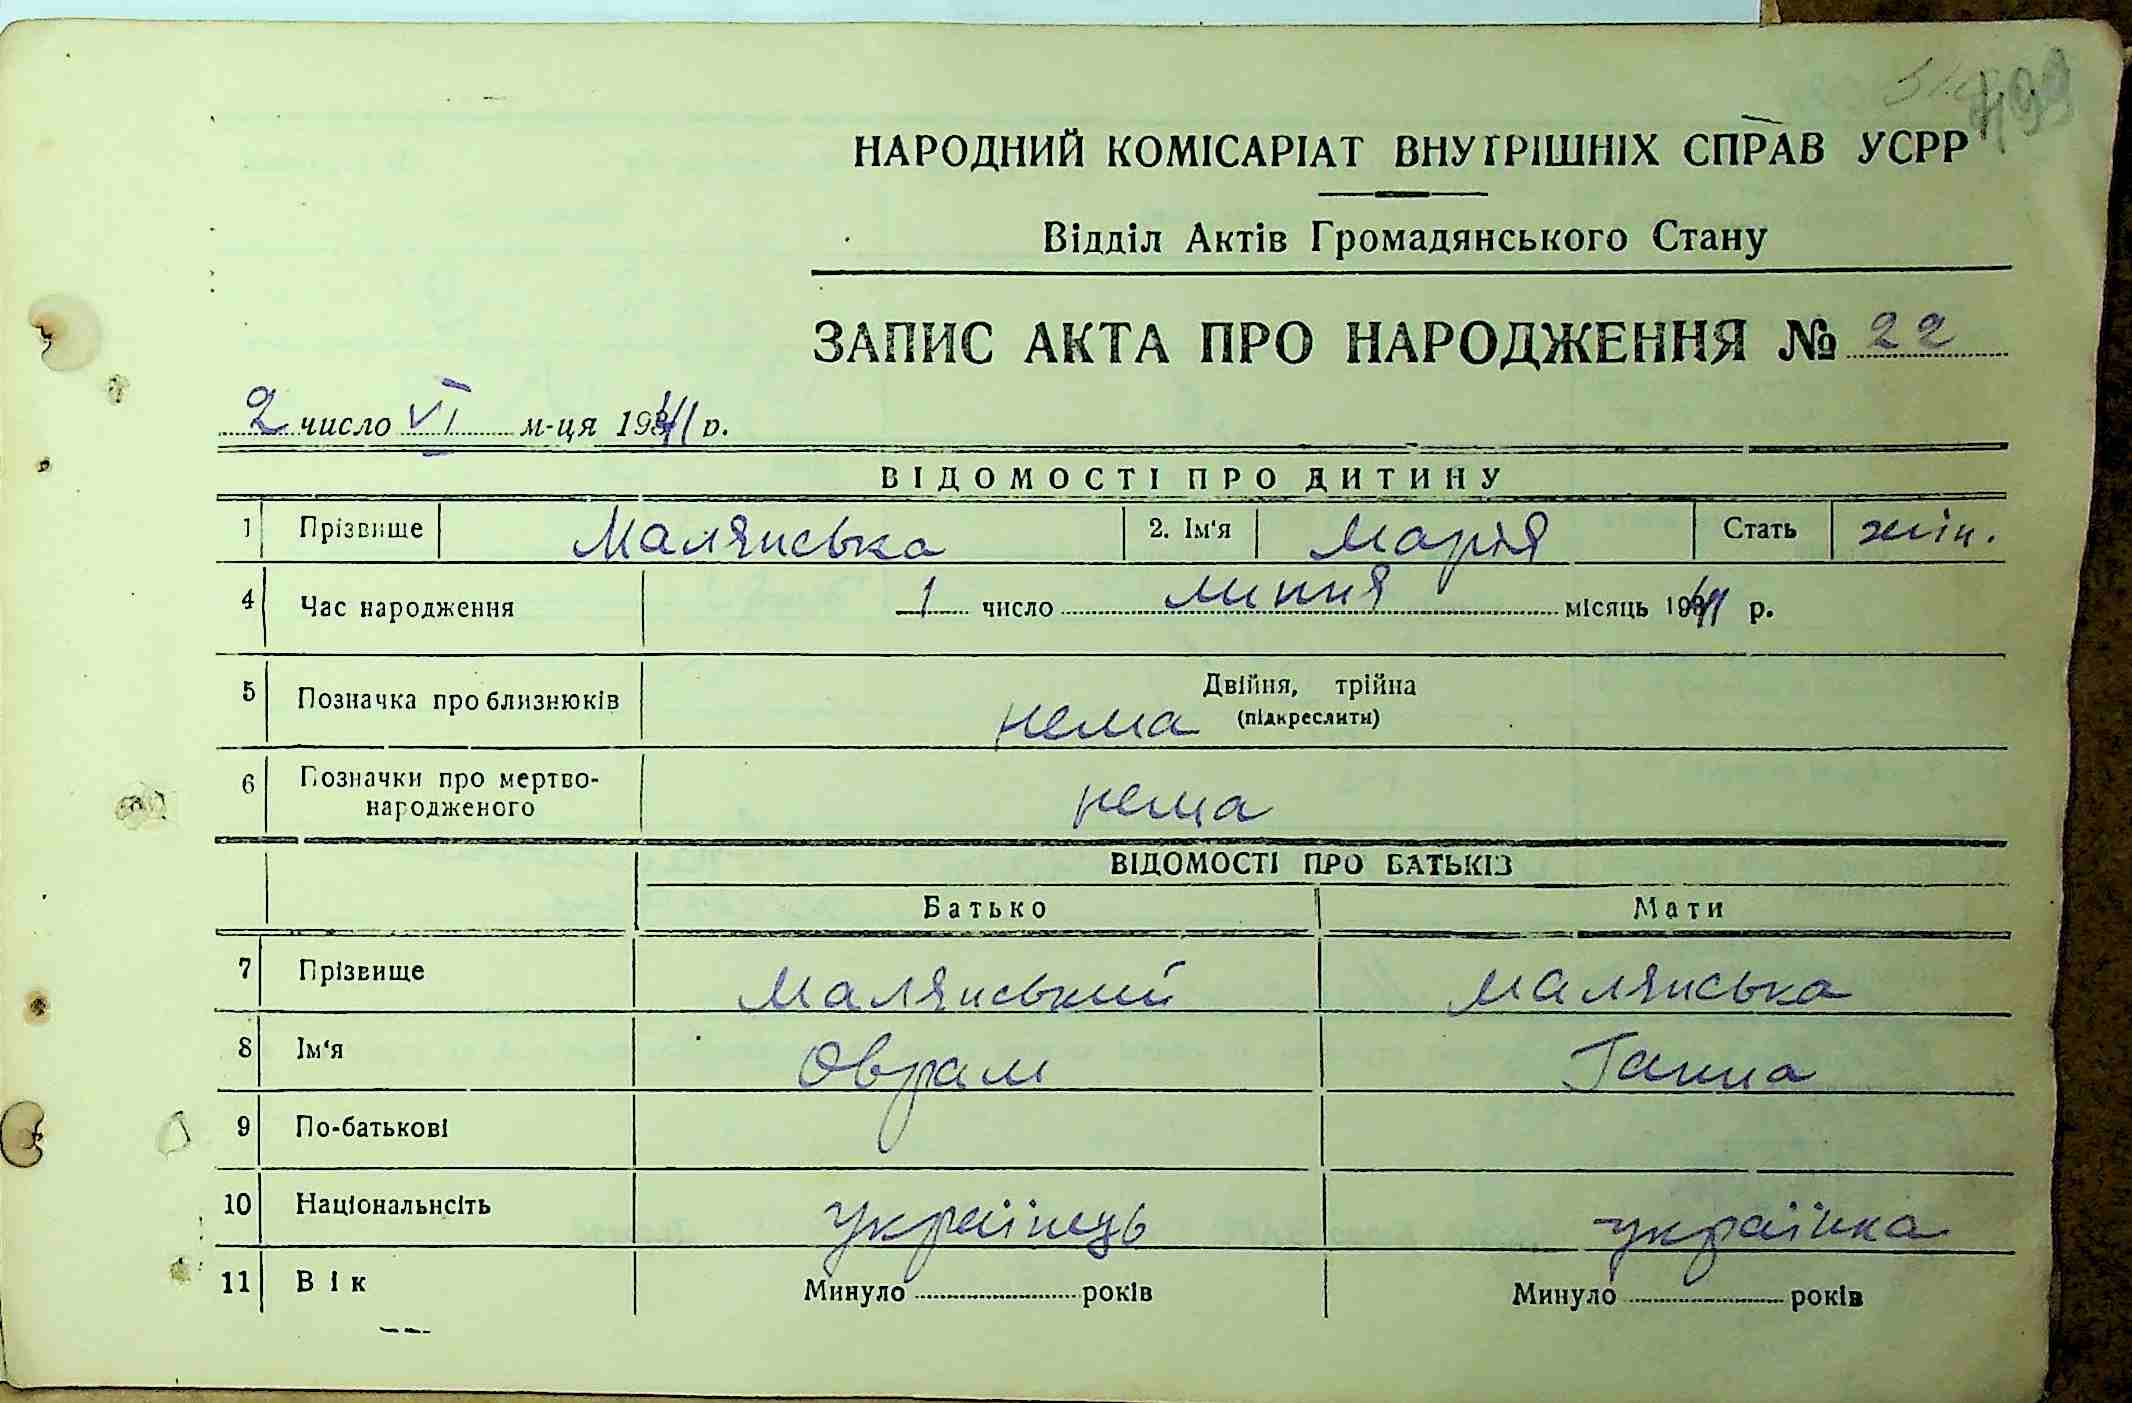 499
НАРОДНИЙ КОМІСАРІАТ ВНУТРІШНІХ СПРАВ УСРР
Відділ Актів Громадянського Стану
ЗАПИС АКТА ПРО НАРОДЖЕННЯ № 22
2 число VI м-ця 1941 р.
ВІДОМОСТІ ПРО ДИТИНУ
1 Прізвище Малянська 2. Ім'я Марія Стать жін.
4 Час народження 1 число липня місяць 1941 р.
5 Позначка про близнюків Двійня, трійна
нема (підкреслити)
6 Позначки про мертво-
народженого нема
ВІДОМОСТІ ПРО БАТЬКІВ
Батько Мати
7 Прізвище Малянський Малянська
8 Ім'я Оврам Ганна
9 По-батькові
10 Національнсіть українець українка
11 Вік Минуло років Минуло років